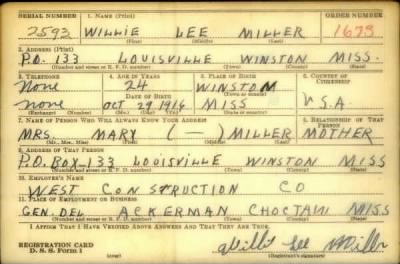 SERIAL NUMBER 1. NAME (Print) ORDER NUMBER
2593 WILLIE LEE MILLER 1673
(First) (Middle) (Last)
2. ADDRESS (Print)
P.O. 133 LOUISVILLE WINSTON MISS.
(Number and street or R. F. D. number) (Town) (County) (State)
3. TELEPHONE 4. AGE IN YEARS 5. PLACE OF BIRTH 6. COUNTRY OF CITIZENSHIP
None 24 WINSTON
DATE OF BIRTH (Town or county)
none Oct 29 1916 MISS U.S.A.
(Exchange) (Number) (Mo.) (Day) (Yr.) (State or country)
7. NAME OF PERSON WHO WILL ALWAYS KNOW YOUR ADDRESS 8. RELATIONSHIP OF THAT PERSON
MRS. MARY (—) MILLER MOTHER
(Mr., Mrs., Miss) (First) (Middle) (Last)
9. ADDRESS OF THAT PERSON
P.O. BOX-133 LOUISVILLE WINSTON MISS
(Number and street or R. F. D. number) (Town) (County) (State)
10. EMPLOYER'S NAME
WEST CONSTRUCTION CO
11. PLACE OF EMPLOYMENT OR BUSINESS
GEN. DEL ACKERMAN CHOCTAW MISS
(Number and street or R. F. D. number) (Town) (County) (State)
I AFFIRM THAT I HAVE VERIFIED ABOVE ANSWERS AND THAT THEY ARE TRUE.
REGISTRATION CARD
D. S. S. Form 1 (over) Willie Lee Miller
(Registrant's signature)